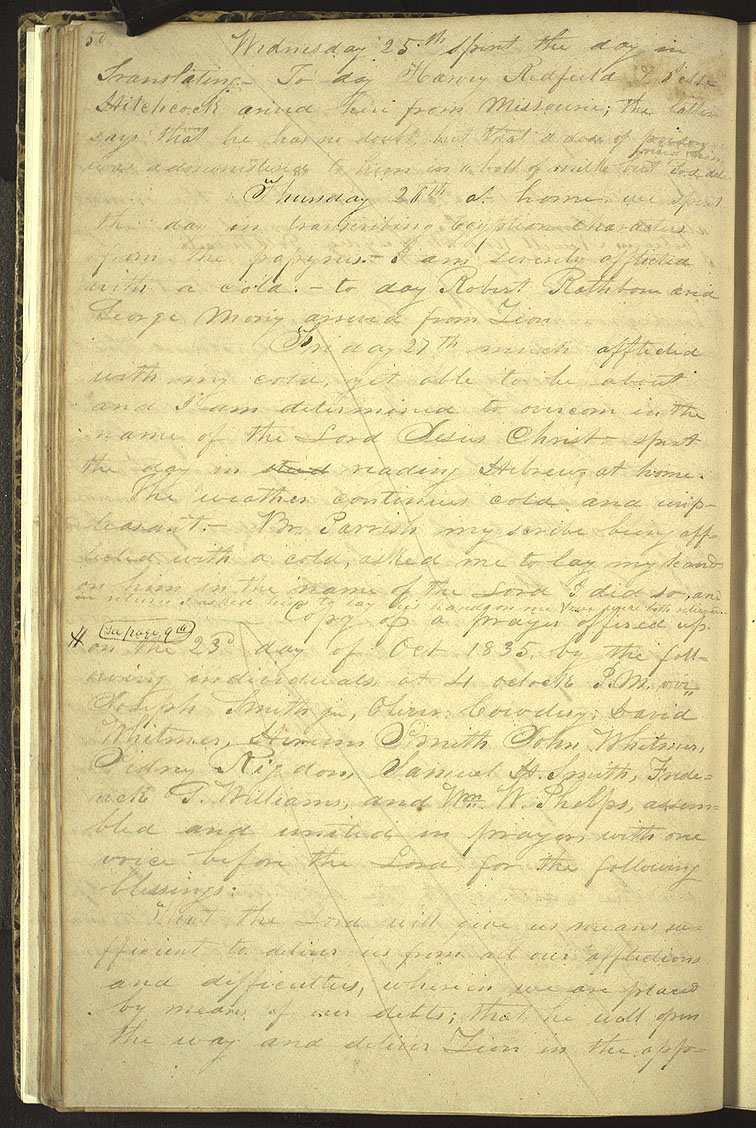 50
Wednesday 25th spent the day in
Translating— To day Harvey Redfield & Jesse
Hitchcock arived here from Missourie; the latter
says that he has no doubt, but that a dose of poison
was administered to him in a bowl of milk but God deli
Thursday 26th at home we spent
the day in transcribing Egyptian characters
from the papyrus.— I am severely afflicted
with a cold.— to day Robert Rathbone and
George Morey arrived from Zion
Friday 27th much afflicted
with my cold, yet able to be about
and I am determined to overcom in the
name of the Lord Jesus Christ— spent
the day in reading Hebrew at home.
The weather continues cold and unp-
leasant.— Br. Parrish my scribe being aff-
licted with a cold, asked me to lay my hands
on him in the name of the Lord I did so, and
in return I asked him to lay his hands on me & we were both relieved
Copy of a prayer offered up
# See page 9th
on the 23d day of Oct 1835, by the foll-
owing individuals, at 4 oclock P.M. viz,
Joseph Smith jn, Oliver Cowdery, David
Whitmer, Hirum Smith John Whitmer,
Sidney Rigdon, Samuel H. Smith, Frede-
rick G. Williams, and Wm. W. Phelps, assem-
bled and united in prayer, with one
voice before the Lord, for the following
blessings:
That the Lord will give us means su-
fficient to deliver us from all our afflictions
and difficulties, wherein we are placed
by means of our debts; that he will open
the way and deliver Zion in the appo-